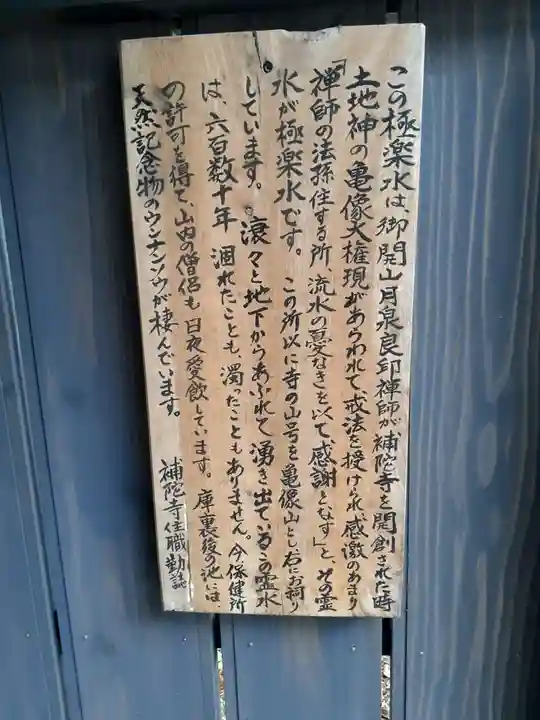 この極楽水は、御開山月泉良印禅師が補陀寺を開創された時
土地神の亀像大権現があらわれて戒法を授けられ、感激のあまり
「禅師の法孫住する所、流水の憂なきを以て感謝となす」と、その霊
水が極楽水です。この所以に寺の山号を亀像山とし、右にお祠り
しています。滾々と地下からあふれて湧き出ているこの霊水
は、六百数十年 涸れたことも、濁ったこともありません。今、保健所
の許可を得て、山内の僧侶も日夜愛飲しています。庫裏後の池には、
天然記念物のウンナンソウが棲んでいます。
補陀寺住職勤誌